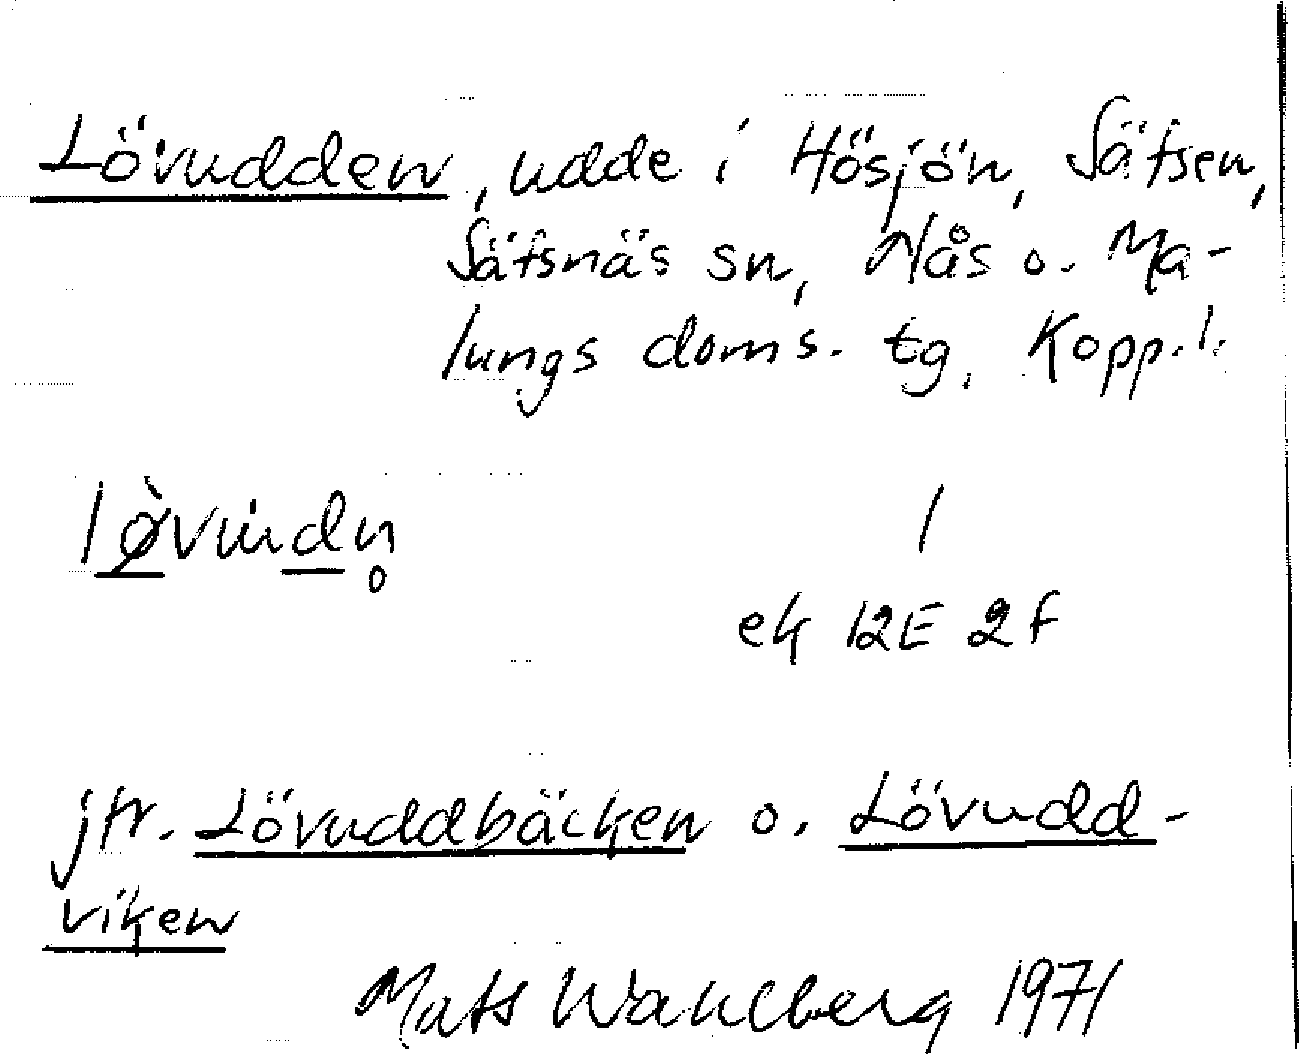 Lövudden, udde i Hösjön, Säfsen,
Säfsnäs sn, Nås o. Ma-
lungs doms. tg, Kopp.l.
ek 12E 2f
jfr. Lövuddbäcken o. Lövudd-
viken
Mats Wahlberg 1971